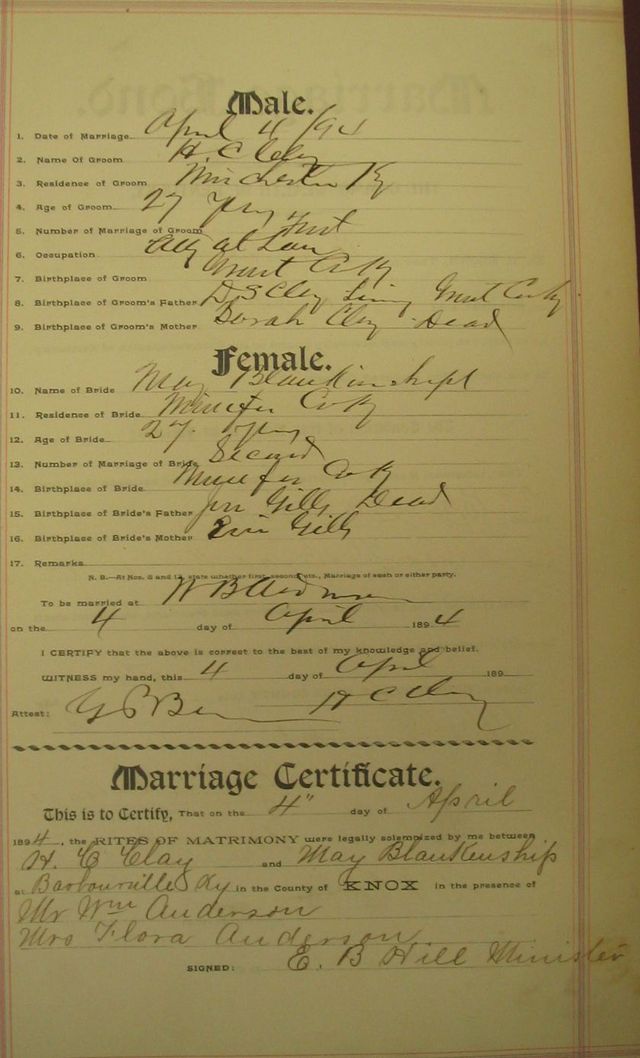 Male.
1. Date of Marriage April 4 /94
2. Name Of Groom H. C Clay
3. Residence of Groom Winchester Ky
4. Age of Groom 27 yrs
5. Number of Marriage of Groom first
6. Occupation Atty at Law
7. Birthplace of Groom Co Ky
8. Birthplace of Groom's Father D S Clay Living Co Ky
9. Birthplace of Groom's Mother Sarah Clay Dead
Female.
10. Name of Bride May Blankinship
11. Residence of Bride Co Ky
12. Age of Bride 27 yrs
13. Number of Marriage of Bride Second
14. Birthplace of Bride Co Ky
15. Birthplace of Bride's Father Gills Dead
16. Birthplace of Bride's Mother Gills
17. Remarks
N. B.—At Nos. 5 and 13, state whether first, second, etc., Marriage of each or either party.
To be married at W B
on the 4 day of April 1894
I CERTIFY that the above is correct to the best of my knowledge and belief.
WITNESS my hand, this 4 day of April 189
Attest: H C Clay
Marriage Certificate.
This is to Certify, That on the 4" day of April
1894, the RITES OF MATRIMONY were legally solemnized by me between
H. C Clay and May Blankenship
at Barbourville Ky in the County of KNOX in the presence of
Mr Wm Anderson
Mrs Flora Anderson
SIGNED: E. B Hill Minister